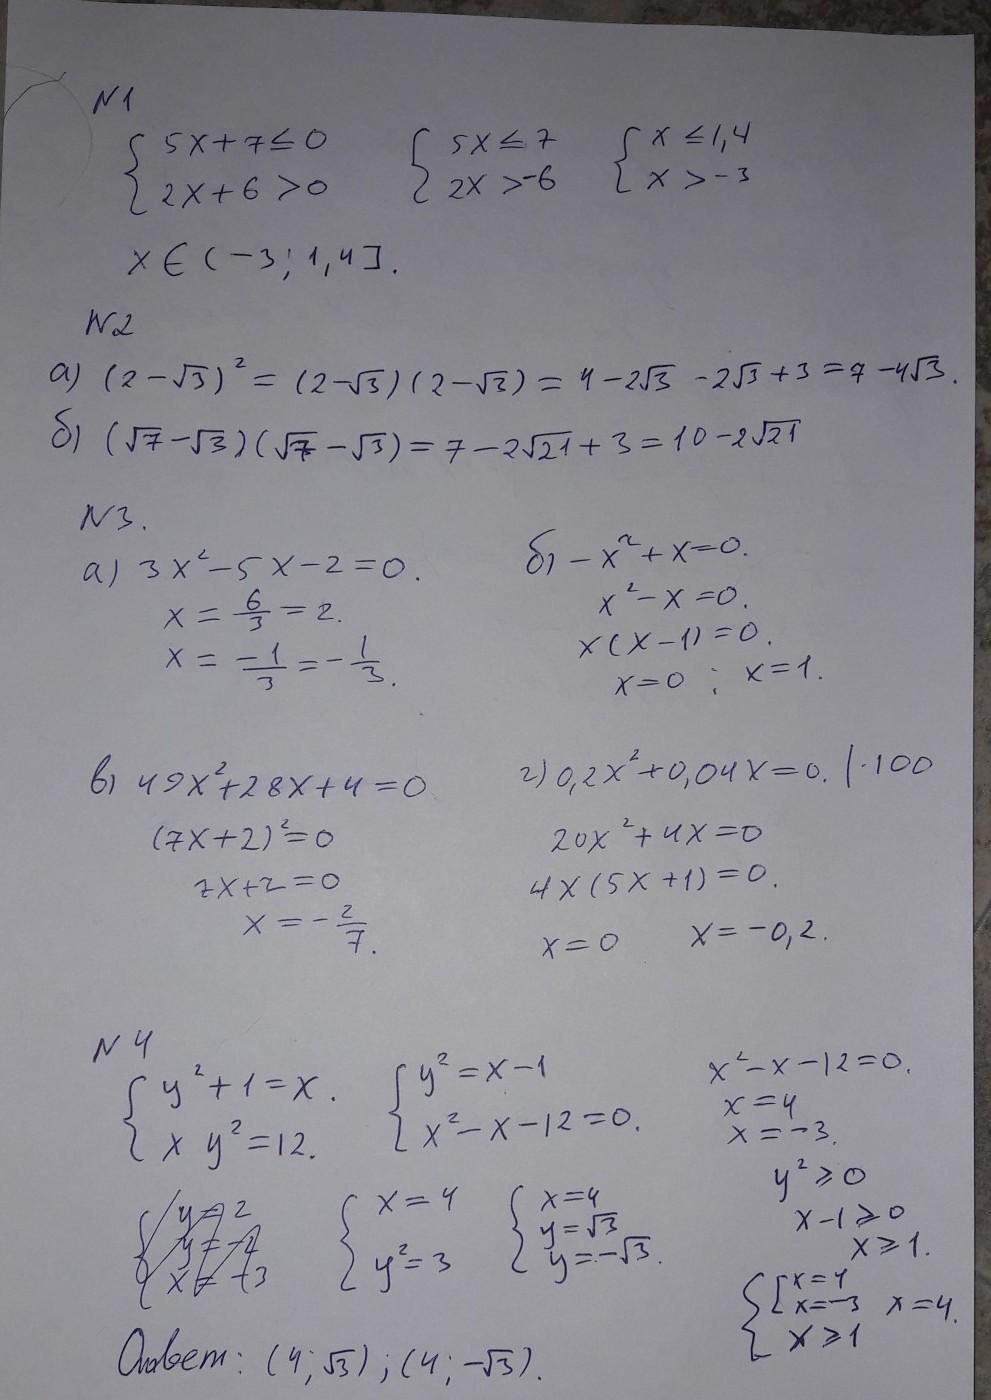 N1
{ 5x+7≤0 { 5x≤7 { x≤1,4
{ 2x+6>0 { 2x>-6 { x>-3
x∈(-3; 1,4].
N2
а) (2-√3)² = (2-√3)(2-√3) = 4-2√3 -2√3+3 = 7-4√3.
б) (√7-√3)(√7-√3) = 7-2√21+3 = 10-2√21
N3.
а) 3x²-5x-2=0.
x = 6/3 = 2.
x = -1/3 = -1/3.
б) -x²+x=0.
x²-x=0.
x(x-1)=0.
x=0 ; x=1.
в) 49x²+28x+4=0
(7x+2)²=0
7x+2=0
x = -2/7.
г) 0,2x²+0,04x=0. |·100
20x²+4x=0
4x(5x+1)=0.
x=0 x=-0,2.
N4
{ y²+1=x. { y²=x-1
{ x y²=12. { x²-x-12=0.
x²-x-12=0.
x=4
x=-3.
y²≥0
x-1≥0
x≥1.
{ [ x=4
[ x=-3 x=4.
{ x≥1
{ x=4 { x=4
{ y²=3 { y=√3
y=-√3.
Ответ: (4;√3);(4;-√3).